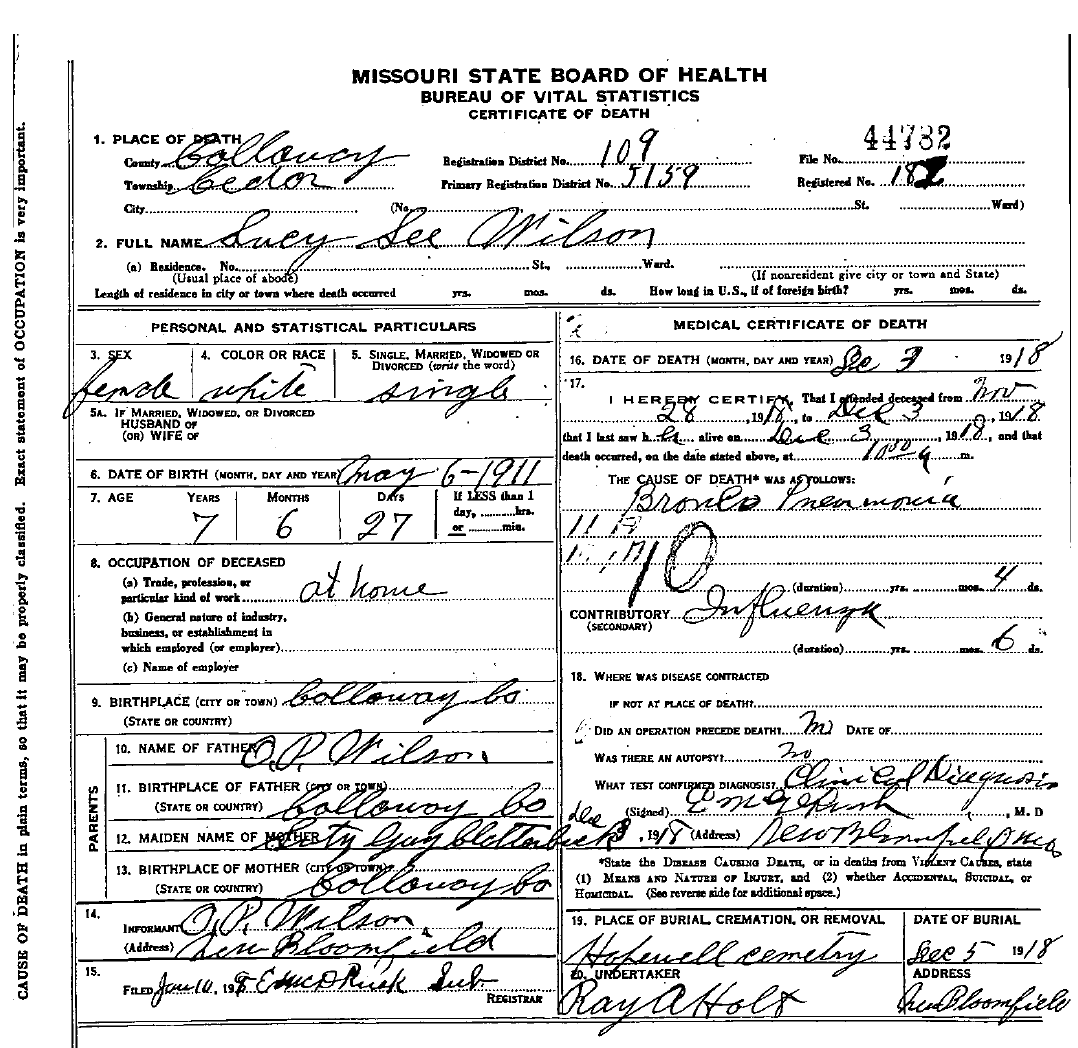 MISSOURI STATE BOARD OF HEALTH
BUREAU OF VITAL STATISTICS
CERTIFICATE OF DEATH
CAUSE OF DEATH in plain terms, so that it may be properly classified. Exact statement of OCCUPATION is very important.
1. PLACE OF DEATH
County Callaway Registration District No. 109 File No. 44782
Township Cedar Primary Registration District No. 5159 Registered No. 182
City (No. , St. Ward)
2. FULL NAME Lucy Lee Wilson
(a) Residence. No. St., Ward.
(Usual place of abode) (If nonresident give city or town and State)
Length of residence in city or town where death occurred yrs. mos. ds. How long in U.S., if of foreign birth? yrs. mos. ds.
PERSONAL AND STATISTICAL PARTICULARS
3. SEX 4. COLOR OR RACE 5. SINGLE, MARRIED, WIDOWED OR
DIVORCED (write the word)
female white single
5A. IF MARRIED, WIDOWED, OR DIVORCED
HUSBAND OF
(OR) WIFE OF
6. DATE OF BIRTH (MONTH, DAY AND YEAR) May 6-1911
7. AGE YEARS MONTHS DAYS If LESS than 1
day, ........hrs.
7 6 27 or ........min.
8. OCCUPATION OF DECEASED
(a) Trade, profession, or
particular kind of work at home
(b) General nature of industry,
business, or establishment in
which employed (or employer)
(c) Name of employer
9. BIRTHPLACE (CITY OR TOWN) Callaway Co
(STATE OR COUNTRY)
PARENTS
10. NAME OF FATHER O.P. Wilson
11. BIRTHPLACE OF FATHER (CITY OR TOWN)
(STATE OR COUNTRY) Callaway Co
12. MAIDEN NAME OF MOTHER Guy Clatterbuck
13. BIRTHPLACE OF MOTHER (CITY OR TOWN)
(STATE OR COUNTRY) Callaway Co
14.
INFORMANT O.P. Wilson
(Address) New Bloomfield
15.
FILED Jan 10, 191 Sub.
REGISTRAR
MEDICAL CERTIFICATE OF DEATH
16. DATE OF DEATH (MONTH, DAY AND YEAR) Dec 3 1918
17.
I HEREBY CERTIFY, That I attended deceased from Nov
28, 1918, to Dec 3, 1918
that I last saw h alive on Dec 3, 1918, and that
death occurred, on the date stated above, at m.
THE CAUSE OF DEATH* WAS AS FOLLOWS:
Bronco Pneumonia
10
(duration) yrs. mos. 4 ds.
CONTRIBUTORY Influenza
(SECONDARY)
(duration) yrs. mos. 6 ds.
18. WHERE WAS DISEASE CONTRACTED
IF NOT AT PLACE OF DEATH?
DID AN OPERATION PRECEDE DEATH? no DATE OF
WAS THERE AN AUTOPSY? no
WHAT TEST CONFIRMED DIAGNOSIS? Clinical Diagnosis
(Signed) , M. D
Dec 3, 1918 (Address) New Bloomfield Mo
*State the DISEASE CAUSING DEATH, or in deaths from VIOLENT CAUSES, state
(1) MEANS AND NATURE OF INJURY, and (2) whether ACCIDENTAL, SUICIDAL, or
HOMICIDAL. (See reverse side for additional space.)
19. PLACE OF BURIAL, CREMATION, OR REMOVAL DATE OF BURIAL
Hopewell cemetry Dec 5 1918
20. UNDERTAKER ADDRESS
Ray A Holt New Bloomfield